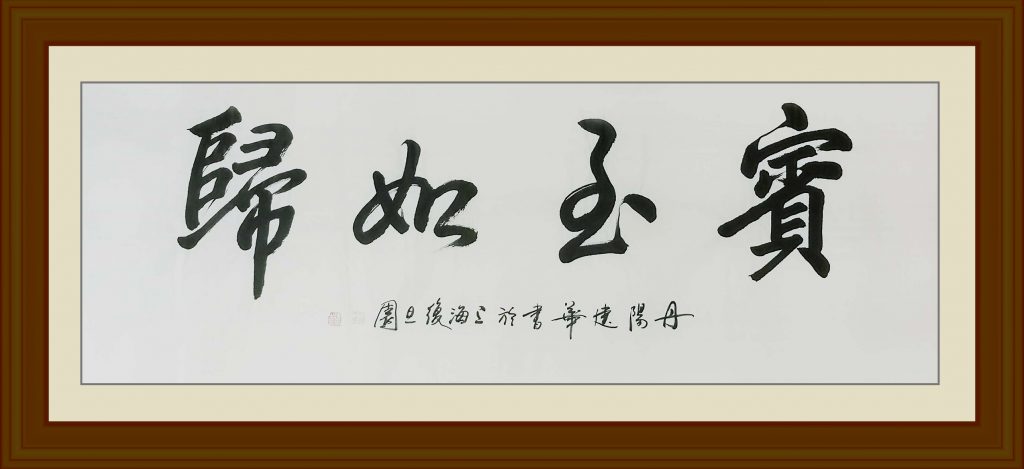 賓至如歸
丹陽華書於上海復旦園